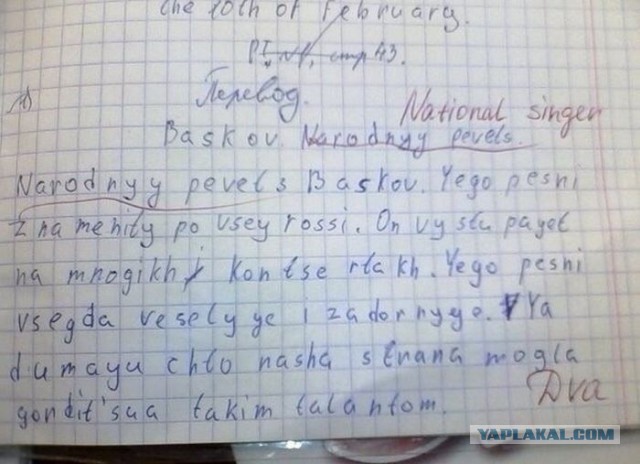 the 10th of February.
P I, №1, стр 43.
1)
Перевод.
National singer
Baskov. Narodnyy pevels.
Narodnyy pevels Baskov. Yego pesni
znamenity po vsey rossi. On vystupayet
na mnogikh kontsertakh. Yego pesni
vsegda veselyye i zadornyye. Ya
dumayu chto nasha strana mogla
gordit'sua takim talantom.
Dva
YAPLAKAL.COM